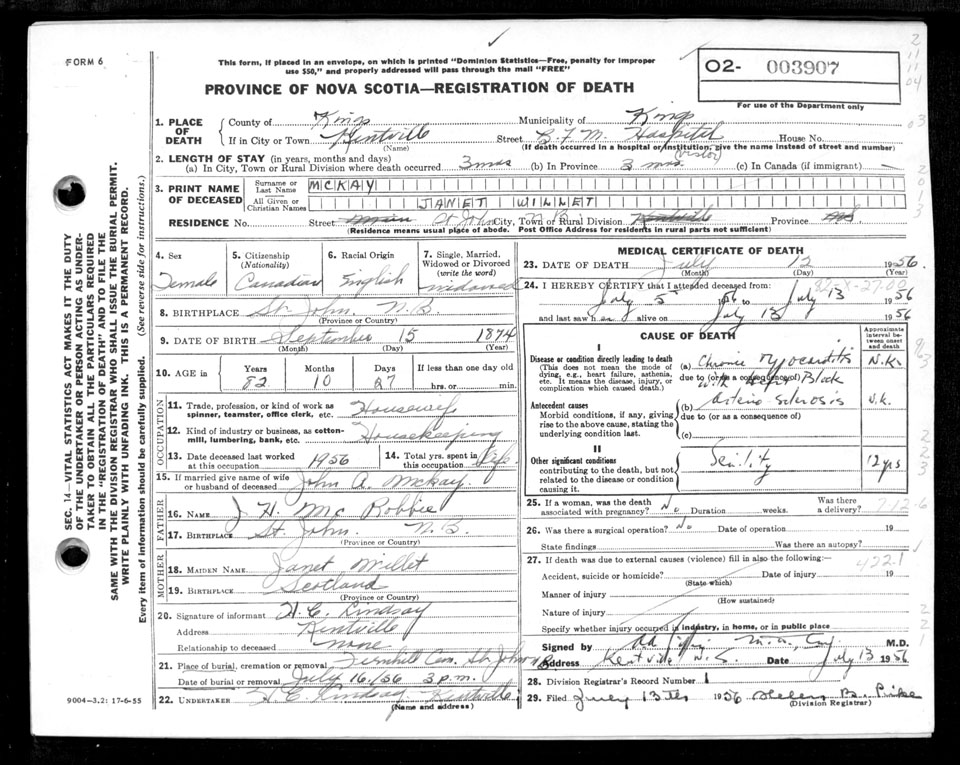 FORM 6
This form, if placed in an envelope, on which is printed "Dominion Statistics—Free, penalty for improper
use $50," and properly addressed will pass through the mail "FREE"
PROVINCE OF NOVA SCOTIA—REGISTRATION OF DEATH
O2- 003907
For use of the Department only
1. PLACE OF DEATH
County of Kings Municipality of Kings
If in City or Town Kentville Street B.F.M. Hospital House No.
(Name) (If death occurred in a hospital or institution, give the name instead of street and number)
2. LENGTH OF STAY (in years, months and days) (Visitor)
(a) In City, Town or Rural Division where death occurred 3 mos (b) In Province 3 mos. (c) In Canada (if immigrant) —
3. PRINT NAME OF DECEASED
Surname or Last Name MCKAY
All Given or Christian Names JANET WILLET
RESIDENCE No. Street Main St John City, Town or Rural Division N.B. Kentville Province NS
(Residence means usual place of abode. Post Office Address for residents in rural parts not sufficient)
4. Sex Female
5. Citizenship (Nationality) Canadian
6. Racial Origin English
7. Single, Married, Widowed or Divorced (write the word) widowed
8. BIRTHPLACE St. John. N.B.
(Province or Country)
9. DATE OF BIRTH September 15 1874
(Month) (Day) (Year)
10. AGE in Years 82 Months 10 Days 27 If less than one day old hrs. or min.
OCCUPATION
11. Trade, profession, or kind of work as spinner, teamster, office clerk, etc. Housewife
12. Kind of industry or business, as cotton-mill, lumbering, bank, etc. Housekeeping
13. Date deceased last worked at this occupation 1956
14. Total yrs. spent in this occupation Life
15. If married give name of wife or husband of deceased John A. McKay.
FATHER
16. NAME J H. Mc Robbie
17. BIRTHPLACE St. John. N.B.
(Province or Country)
MOTHER
18. MAIDEN NAME Janet Willet
19. BIRTHPLACE Scotland
(Province or Country)
20. Signature of informant H. C. Lindsay
Address Kentville
Relationship to deceased none
21. Place of burial, cremation or removal Fernhill Cem. St. John NB
Date of burial or removal July 16/56 3 p.m.
22. UNDERTAKER H. C. Lindsay Kentville
(Name and address)
MEDICAL CERTIFICATE OF DEATH
23. DATE OF DEATH July 12 1956.
(Month) (Day) (Year)
24. I HEREBY CERTIFY that I attended deceased from:
July 5 1956 to July 13 1956
and last saw her alive on July 13 1956
CAUSE OF DEATH
Approximate interval between onset and death
I
Disease or condition directly leading to death
(This does not mean the mode of dying, e.g., heart failure, asthenia, etc. It means the disease, injury, or complication which caused death.)
(a) Chronic Myocarditis N.K.
due to (or as a consequence of)
Block
Antecedent causes
Morbid conditions, if any, giving rise to the above cause, stating the underlying condition last.
(b) Arterio sclerosis N.K.
due to (or as a consequence of)
(c)
II
Other significant conditions
contributing to the death, but not related to the disease or condition causing it.
Senility 12 yrs
25. If a woman, was the death associated with pregnancy? No Duration weeks. Was there a delivery?
26. Was there a surgical operation? No Date of operation 19
State findings Was there an autopsy?
27. If death was due to external causes (violence) fill in also the following:
4221
Accident, suicide or homicide? Date of injury 19
(State which)
Manner of injury
(How sustained)
Nature of injury
Specify whether injury occurred in industry, in home, or in public place
Signed by M.D.
Address Kentville N.S. Date July 13 1956
28. Division Registrar's Record Number 1
29. Filed July 13th 1956 Helen B. Pike
(Division Registrar)
SEC. 14—VITAL STATISTICS ACT MAKES IT THE DUTY
OF THE UNDERTAKER OR PERSON ACTING AS UNDER-
TAKER TO OBTAIN ALL THE PARTICULARS REQUIRED
IN THE "REGISTRATION OF DEATH" AND TO FILE THE
SAME WITH THE DIVISION REGISTRAR WHO SHALL ISSUE THE BURIAL PERMIT.
WRITE PLAINLY WITH UNFADING INK. THIS IS A PERMANENT RECORD.
Every item of information should be carefully supplied. (See reverse side for instructions.)
9004—3.2: 17-6-55